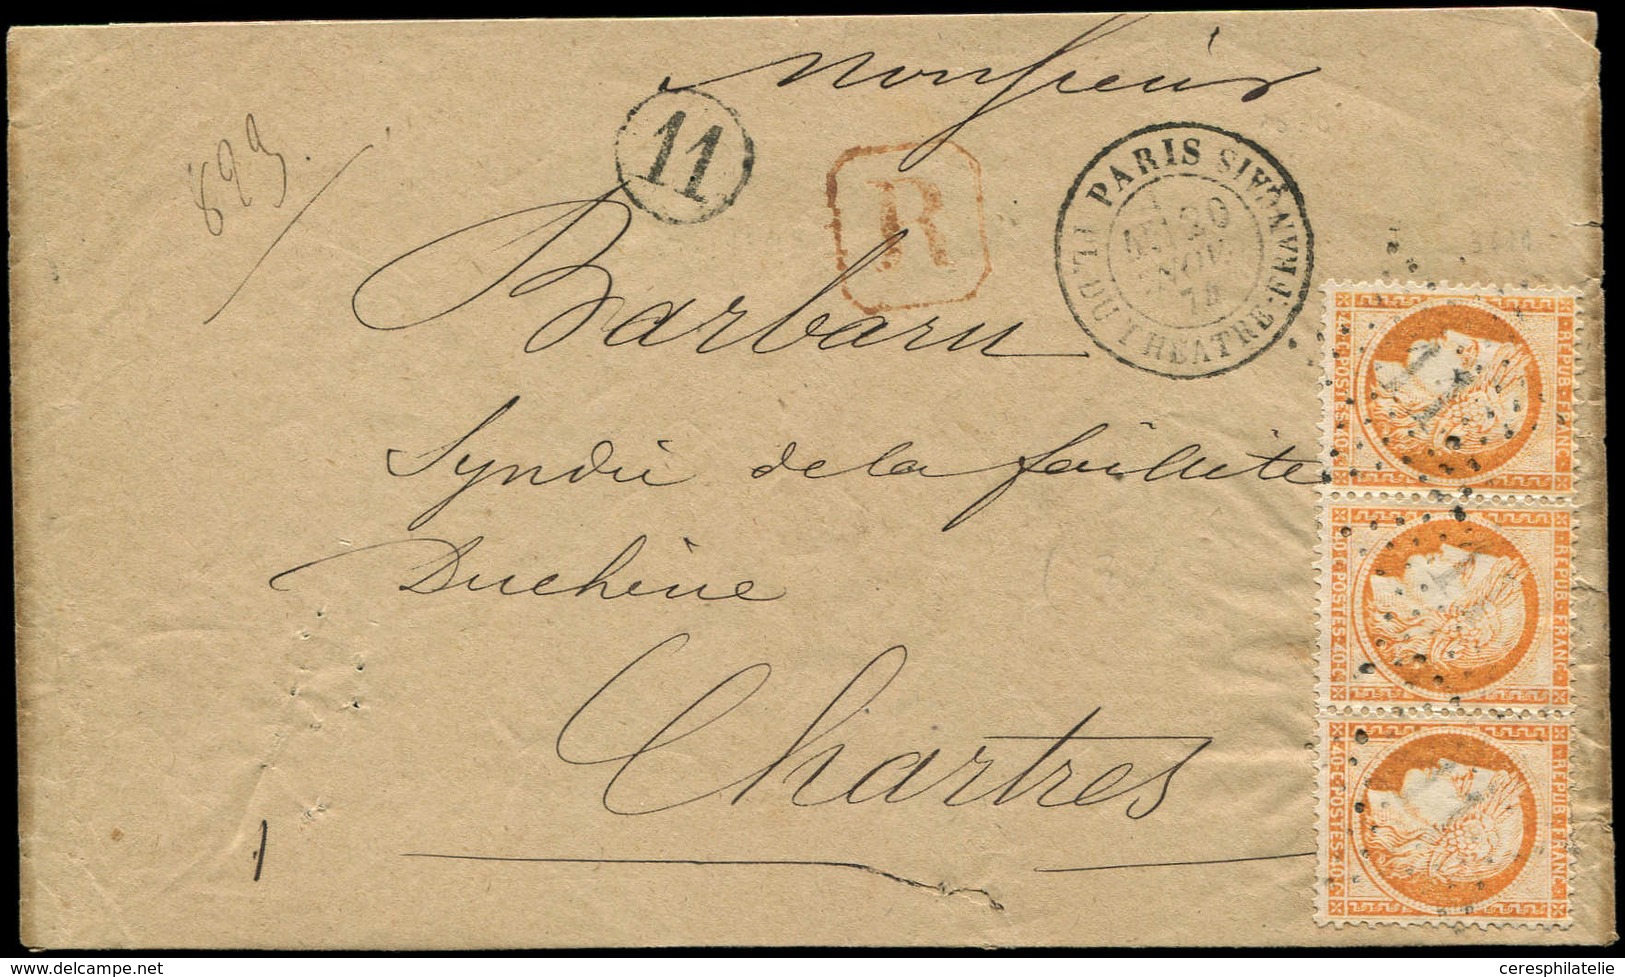 Monsieur
893
11
R
PARIS
PL. DU THEATRE-FRANÇAIS
20
NOV.
Barbaru
Syndic de la faillite
Duchêne
Chartres
1
REPUB·FRANC·
40·C·POSTES·40·C
REPUB·FRANC·
40·C·POSTES·40·C
REPUB·FRANC·
40·C·POSTES·40·C
Delcampe.net
ceresphilatelie